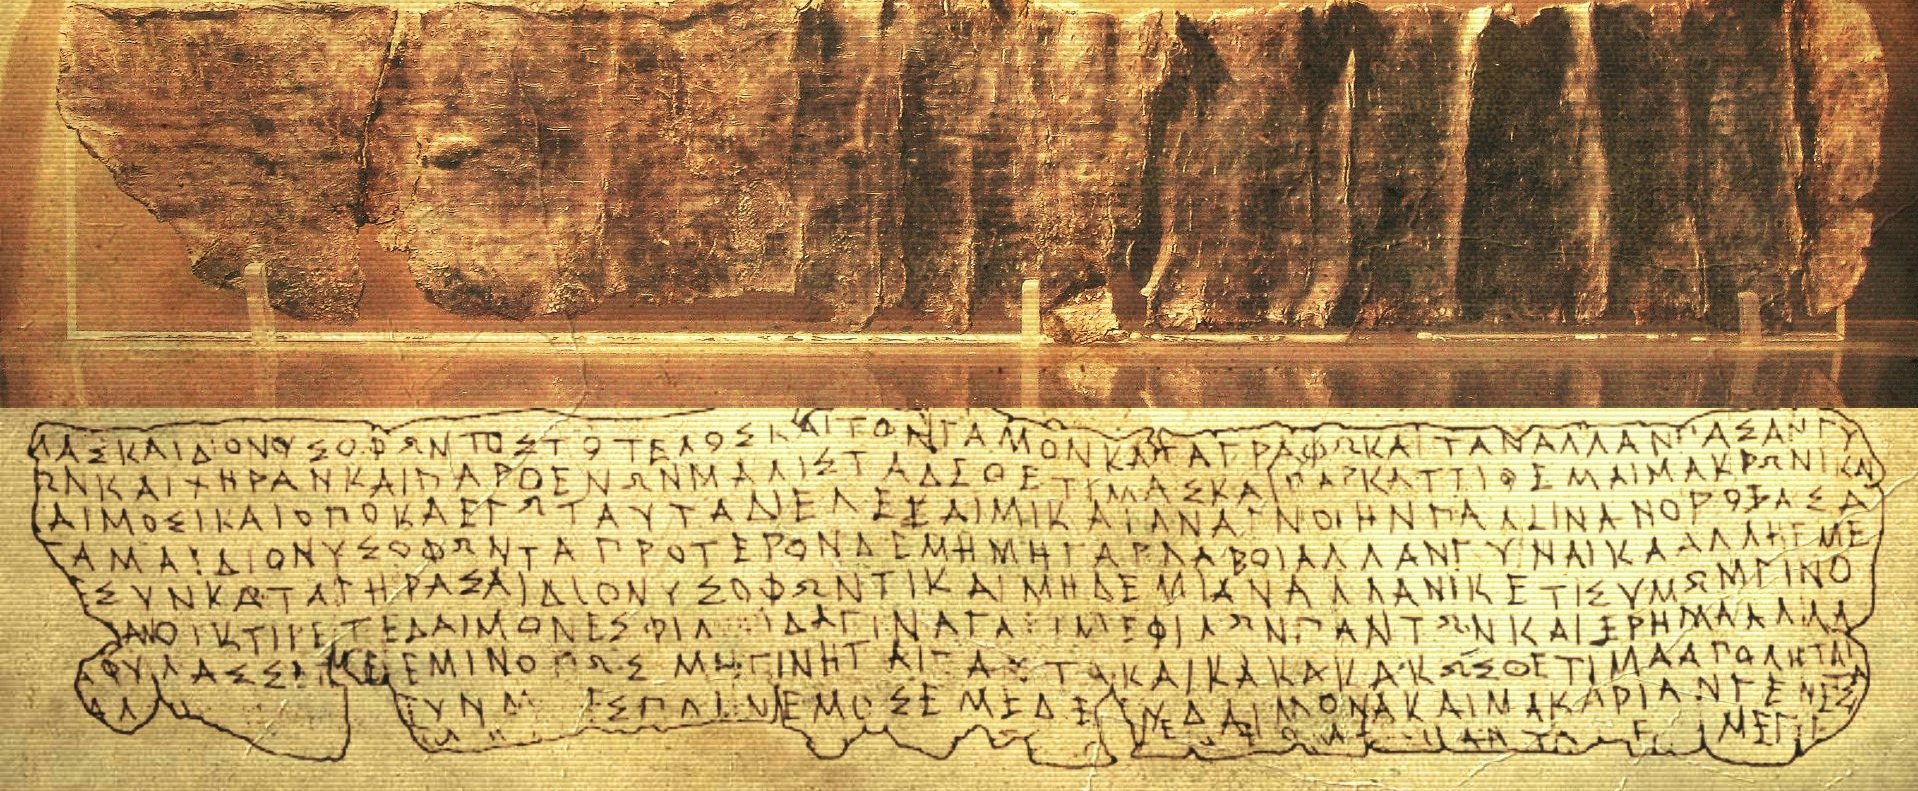 ΜΑΣΚΑΙΔΙΟΝΥΣΟΦΩΝΤΟΣΤΟΤΕΛΟΣΚΑΙΤΟΝΓΑΜΟΝΚΑΤΑΓΡΑΦΩΚΑΙΤΑΝΑΛΛΑΝΠΑΣΑΝΓΥ
ΩΝΚΑΙΧΗΡΑΝΚΑΙΠΑΡΘΕΝΩΝΜΑΛΙΣΤΑΔΕΘΕΤΙΜΑΣΚΑΙΠΑΡΚΑΤΤΙΘΕΜΑΙΜΑΚΡΩΝΙΚΑΙ
ΔΑΙΜΟΣΙΚΑΙΟΠΟΚΑΕΓΩΤΑΥΤΑΔΙΕΛΕΞΑΙΜΙΚΑΙΑΝΑΓΝΟΙΗΝΠΑΛΙΝΑΝΟΡΟΞΑΣΑ
ΓΑΜΑΙΔΙΟΝΥΣΟΦΩΝΤΑΠΡΟΤΕΡΟΝΔΕΜΗΜΗΓΑΡΛΑΒΟΙΑΛΛΑΝΓΥΝΑΙΚΑΑΛΛΗΕΜΕ
ΣΥΝΚΑΤΑΓΗΡΑΣΑΙΔΙΟΝΥΣΟΦΩΝΤΙΚΑΙΜΗΔΕΜΙΑΝΑΛΛΑΝΙΚΕΤΙΣΥΜΩΜΓΙΝΟ
ΑΝΟΙΚΤΙΡΕΤΕΔΑΙΜΟΝΕΣΦΙΛ ΙΔΑΓΙΝΑΓΑ ΙΜΕΦΙΛΩΝΠΑΝΤΩΝΚΑΙΕΡΗΜΑΑΛΛΑ
ΑΦΥΛΑΣΣΕΤΕΕΜΙΝΟΠΩΣΜΗΓΙΝΗΤΑΙΤΑΥΤΑΚΑΙΚΑΚΑΚΑΚΩΣΘΕΤΙΜΑΑΠΟΛΗΤΑΙ
ΑΛ ΥΝΜ ΕΣΠΛΗΝΕΜΟΣΕΜΕΔΕ ΥΔΑΙΜΟΝΑΚΑΙΜΑΚΑΡΙΑΝΓΕΝΕΣ
ΜΕΓΕ